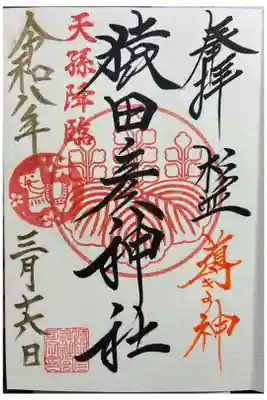 奉拝
杉並
導きの神
猿田彦神社
天孫降臨
令和八年
三月
日